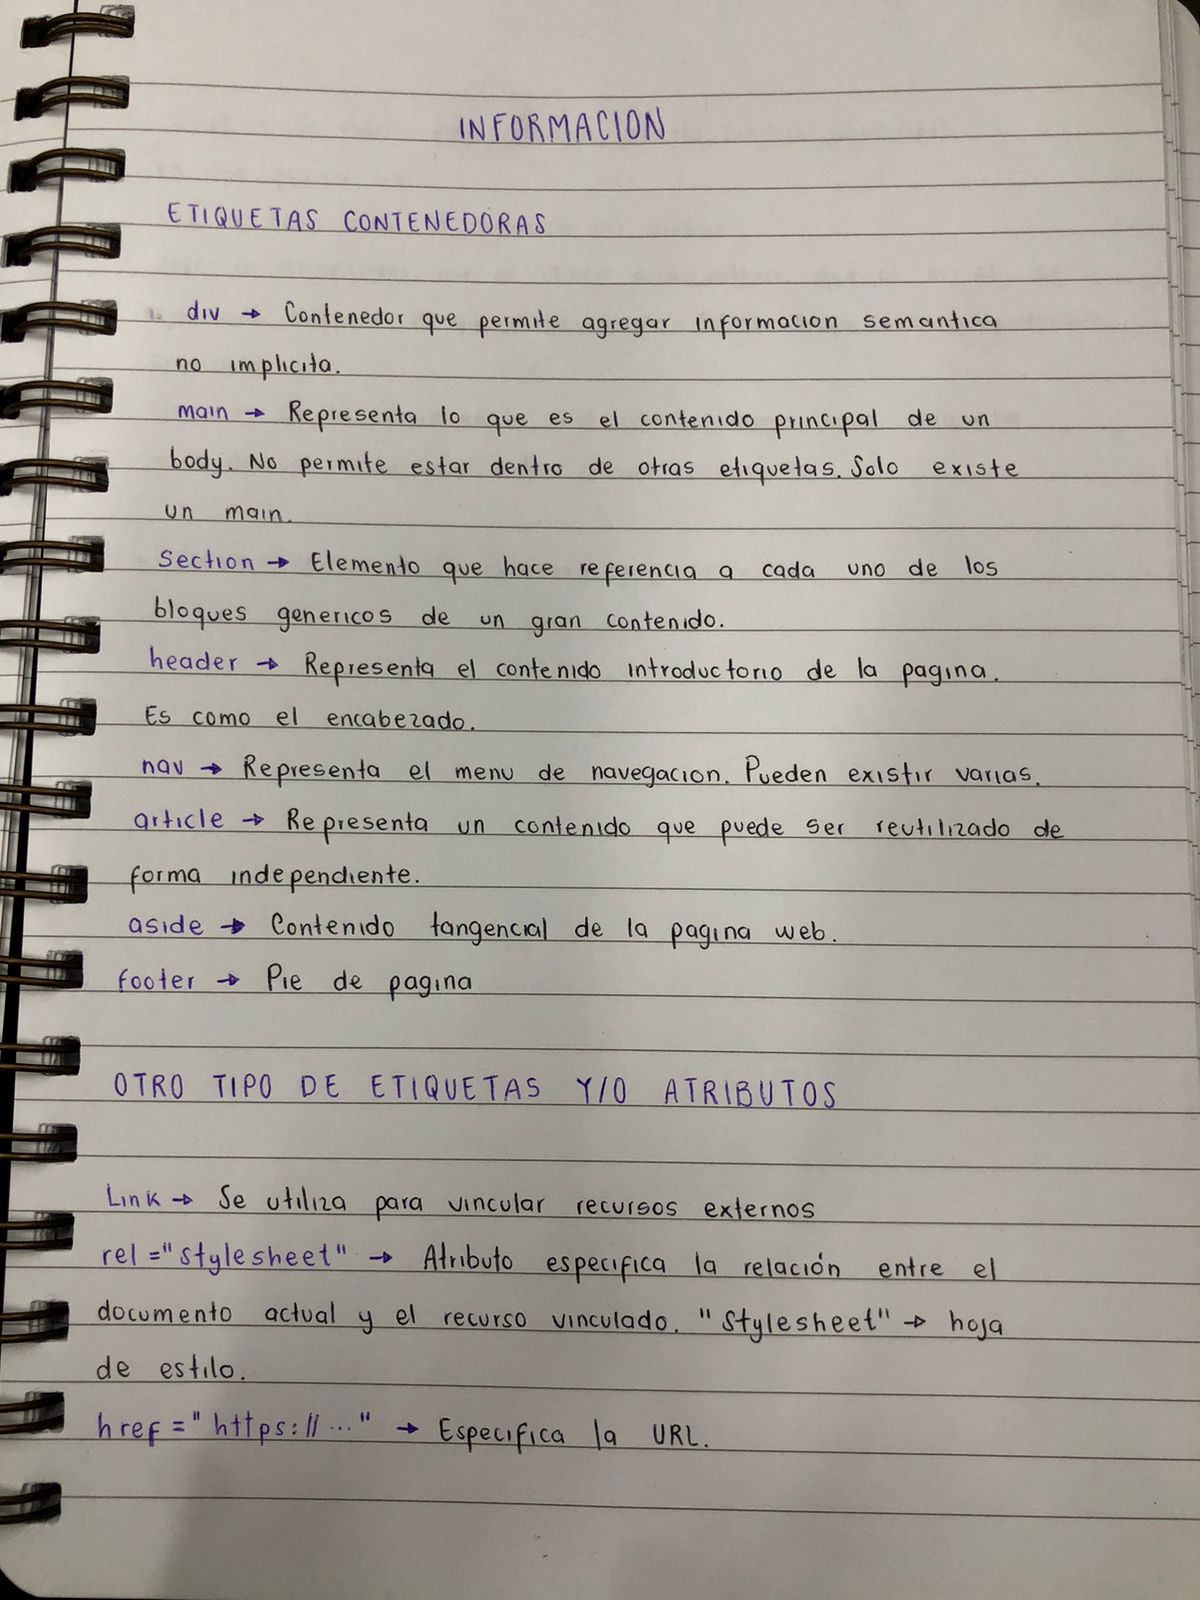 INFORMACION
ETIQUETAS CONTENEDORAS
div → Contenedor que permite agregar informacion semantica
no implicita.
main → Representa lo que es el contenido principal de un
body. No permite estar dentro de otras etiquetas. Solo existe
un main.
Section → Elemento que hace referencia a cada uno de los
bloques genericos de un gran contenido.
header → Representa el contenido introductorio de la pagina.
Es como el encabezado.
nav → Representa el menu de navegacion. Pueden existir varias.
article → Representa un contenido que puede ser reutilizado de
forma independiente.
aside → Contenido tangencial de la pagina web.
footer → Pie de pagina
OTRO TIPO DE ETIQUETAS Y/O ATRIBUTOS
Link → Se utiliza para vincular recursos externos
rel ="stylesheet" → Atributo especifica la relación entre el
documento actual y el recurso vinculado. "Stylesheet" → hoja
de estilo.
href = "https://..." → Especifica la URL.